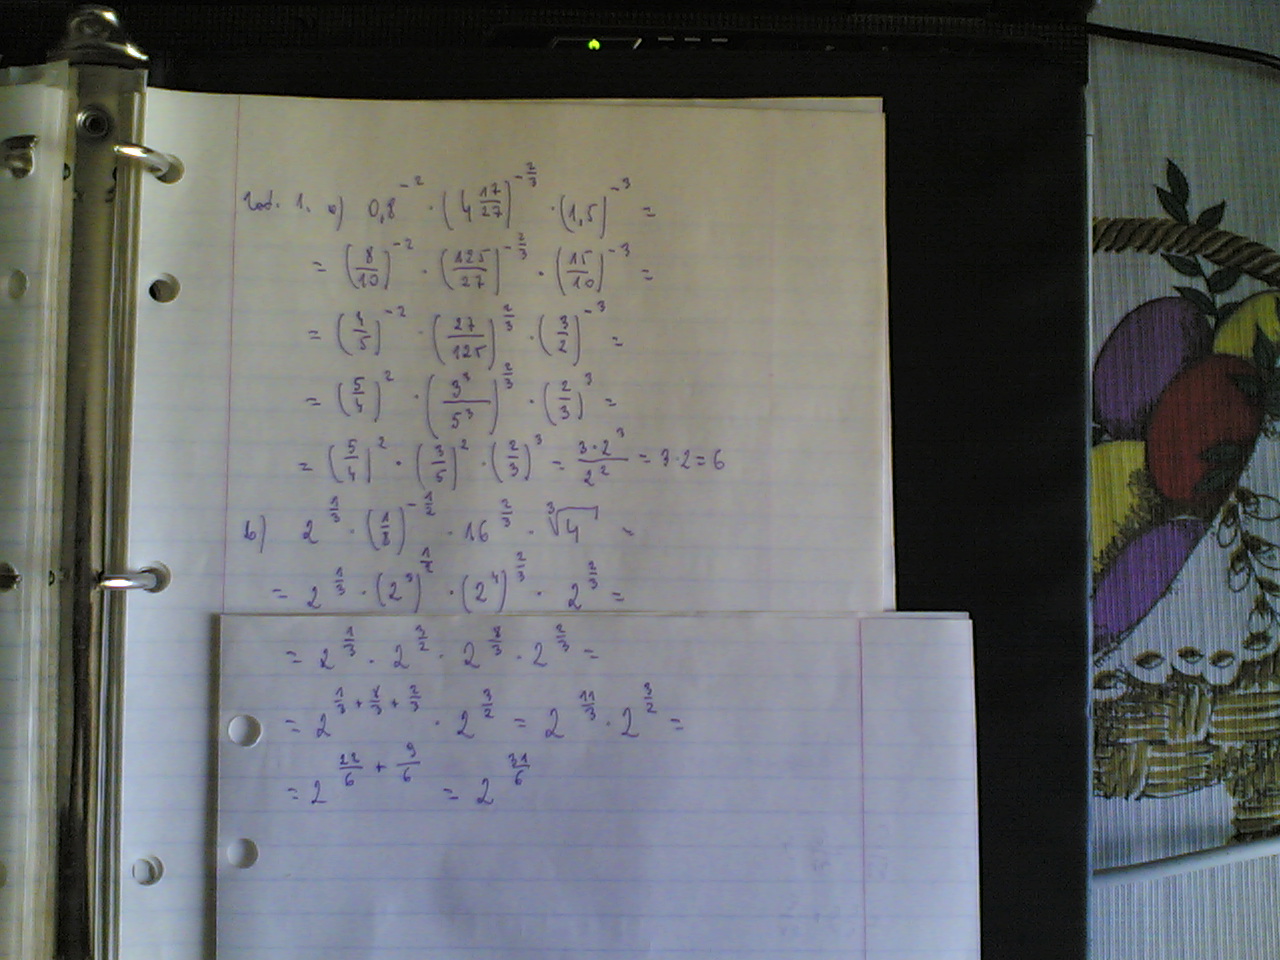 Zad. 1. a) 0,8^{-2} · (4 17/27)^{-2/3} · (1,5)^{-3} =
= (8/10)^{-2} · (125/27)^{-2/3} · (15/10)^{-3} =
= (4/5)^{-2} · (27/125)^{2/3} · (3/2)^{-3} =
= (5/4)^2 · (3^3/5^3)^{2/3} · (2/3)^3 =
= (5/4)^2 · (3/5)^2 · (2/3)^3 = 3·2^3/2^2 = 3·2=6
b) 2^{1/3} · (1/8)^{-1/2} · 16^{2/3} · ∛4 =
= 2^{1/3} · (2^3)^{1/2} · (2^4)^{2/3} · 2^{2/3} =
= 2^{1/3} · 2^{3/2} · 2^{8/3} · 2^{2/3} =
= 2^{1/3 + 8/3 + 2/3} · 2^{3/2} = 2^{11/3} · 2^{3/2} =
= 2^{22/6 + 9/6} = 2^{31/6}